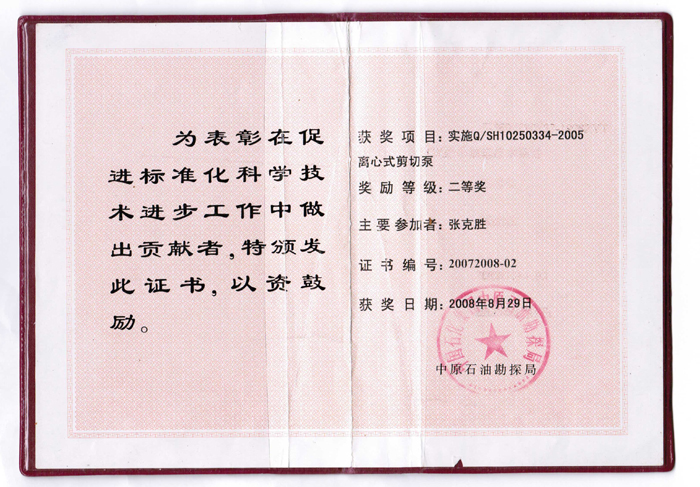 为表彰在促
进标准化科学技
术进步工作中做
出贡献者，特颁发
此证书，以资鼓
励。
获奖项目：实施Q/SH10250334-2005
离心式剪切泵
奖励等级：二等奖
主要参加者：张克胜
证书编号：20072008-02
获奖日期：2008年8月29日
中原石油勘探局